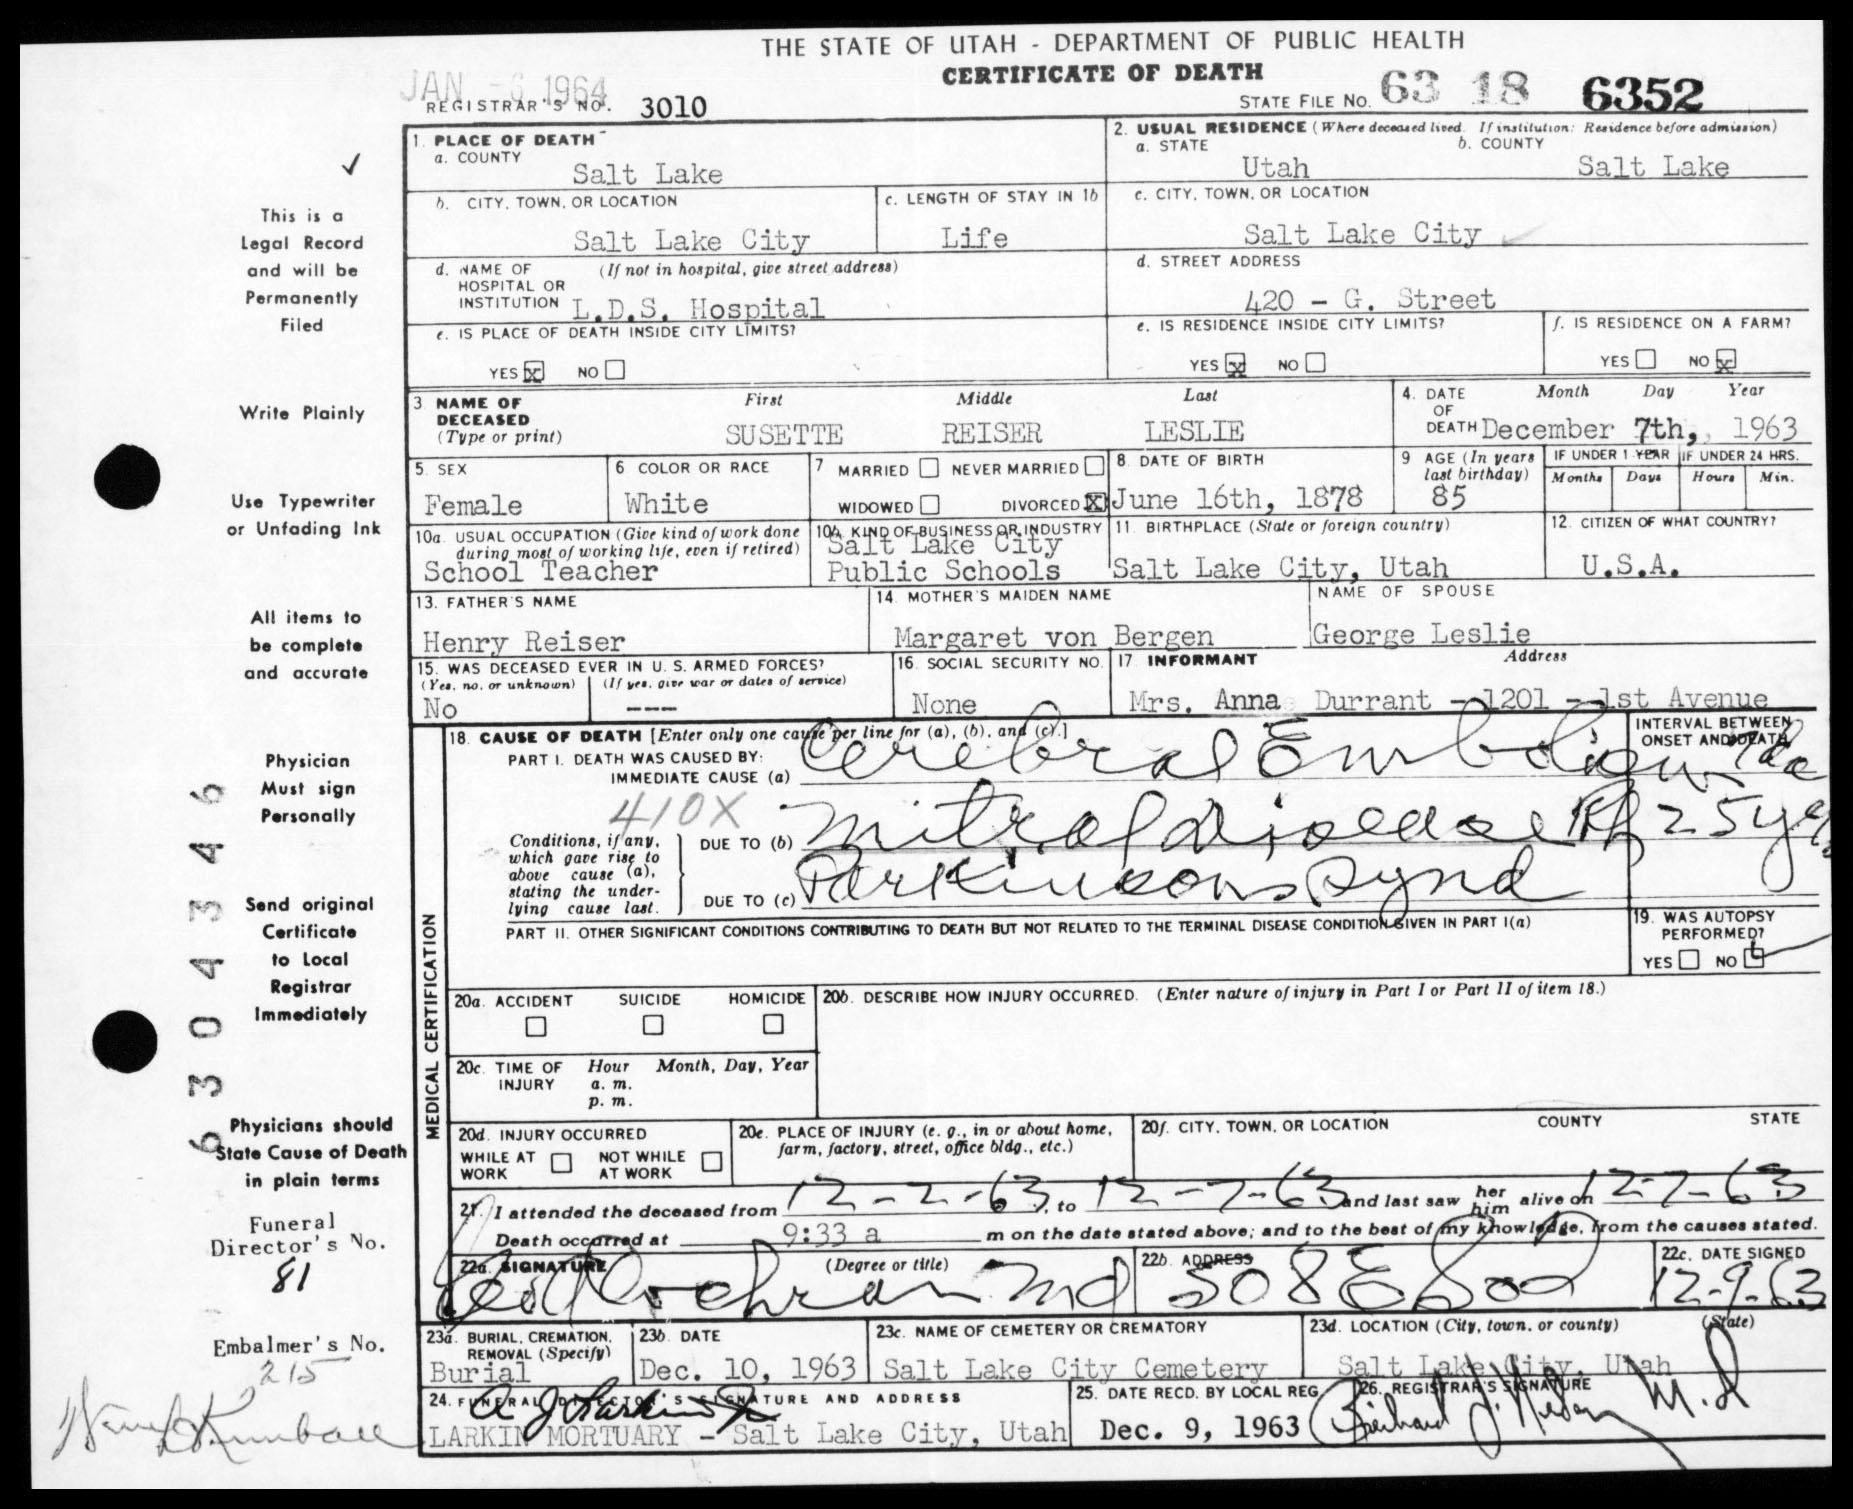 THE STATE OF UTAH - DEPARTMENT OF PUBLIC HEALTH
CERTIFICATE OF DEATH
JAN -6 1964
REGISTRAR'S NO. 3010
STATE FILE NO. 63 18 6352
1. PLACE OF DEATH
a. COUNTY
Salt Lake
2. USUAL RESIDENCE (Where deceased lived. If institution: Residence before admission)
a. STATE b. COUNTY
Utah Salt Lake
b. CITY, TOWN, OR LOCATION
Salt Lake City
c. LENGTH OF STAY IN 1b
Life
c. CITY, TOWN, OR LOCATION
Salt Lake City
d. NAME OF HOSPITAL OR INSTITUTION (If not in hospital, give street address)
L.D.S. Hospital
d. STREET ADDRESS
420 - G. Street
e. IS PLACE OF DEATH INSIDE CITY LIMITS?
YES X NO
e. IS RESIDENCE INSIDE CITY LIMITS?
YES X NO
f. IS RESIDENCE ON A FARM?
YES NO X
3 NAME OF DECEASED (Type or print)
First Middle Last
SUSETTE REISER LESLIE
4. DATE OF DEATH Month Day Year
December 7th, 1963
5. SEX
Female
6 COLOR OR RACE
White
7 MARRIED NEVER MARRIED
WIDOWED DIVORCED X
8. DATE OF BIRTH
June 16th, 1878
9 AGE (In years last birthday)
85
IF UNDER 1 YEAR IF UNDER 24 HRS.
Months Days Hours Min.
10a. USUAL OCCUPATION (Give kind of work done during most of working life, even if retired)
School Teacher
10b. KIND OF BUSINESS OR INDUSTRY
Salt Lake City
Public Schools
11. BIRTHPLACE (State or foreign country)
Salt Lake City, Utah
12. CITIZEN OF WHAT COUNTRY?
U.S.A.
13. FATHER'S NAME
Henry Reiser
14. MOTHER'S MAIDEN NAME
Margaret von Bergen
NAME OF SPOUSE
George Leslie
15. WAS DECEASED EVER IN U. S. ARMED FORCES?
(Yes, no, or unknown) (If yes, give war or dates of service)
No ---
16. SOCIAL SECURITY NO.
None
17 INFORMANT Address
Mrs. Anna Durrant - 1201 - 1st Avenue
MEDICAL CERTIFICATION
18. CAUSE OF DEATH [Enter only one cause per line for (a), (b), and (c).]
INTERVAL BETWEEN ONSET AND DEATH
PART I. DEATH WAS CAUSED BY:
IMMEDIATE CAUSE (a) Cerebral Embolism
410X
Conditions, if any, which gave rise to above cause (a), stating the underlying cause last.
DUE TO (b) Mitral disease 25 yrs
DUE TO (c) Parkinsons Synd
PART II. OTHER SIGNIFICANT CONDITIONS CONTRIBUTING TO DEATH BUT NOT RELATED TO THE TERMINAL DISEASE CONDITION GIVEN IN PART I(a)
19. WAS AUTOPSY PERFORMED?
YES NO
20a. ACCIDENT SUICIDE HOMICIDE
20b. DESCRIBE HOW INJURY OCCURRED. (Enter nature of injury in Part I or Part II of item 18.)
20c. TIME OF INJURY Hour Month, Day, Year
a. m.
p. m.
20d. INJURY OCCURRED
WHILE AT WORK NOT WHILE AT WORK
20e. PLACE OF INJURY (e. g., in or about home, farm, factory, street, office bldg., etc.)
20f. CITY, TOWN, OR LOCATION COUNTY STATE
21. I attended the deceased from 12-2-63, to 12-7-63 and last saw her him alive on 12-7-63
Death occurred at 9:33 a m on the date stated above; and to the best of my knowledge, from the causes stated.
22a. SIGNATURE (Degree or title)
Cochran Md
22b. ADDRESS
508 E
22c. DATE SIGNED
12-9-63
23a. BURIAL, CREMATION, REMOVAL (Specify)
Burial
23b. DATE
Dec. 10, 1963
23c. NAME OF CEMETERY OR CREMATORY
Salt Lake City Cemetery
23d. LOCATION (City, town, or county) (State)
Salt Lake City, Utah
24. FUNERAL DIRECTOR'S SIGNATURE AND ADDRESS
A J Larkin
LARKIN MORTUARY - Salt Lake City, Utah
25. DATE RECD. BY LOCAL REG.
Dec. 9, 1963
26. REGISTRAR'S SIGNATURE
Richard M.D
This is a
Legal Record
and will be
Permanently
Filed
Write Plainly
Use Typewriter
or Unfading Ink
All items to
be complete
and accurate
Physician
Must sign
Personally
Send original
Certificate
to Local
Registrar
Immediately
Physicians should
State Cause of Death
in plain terms
Funeral
Director's No.
81
Embalmer's No.
215
Kimball
6304346